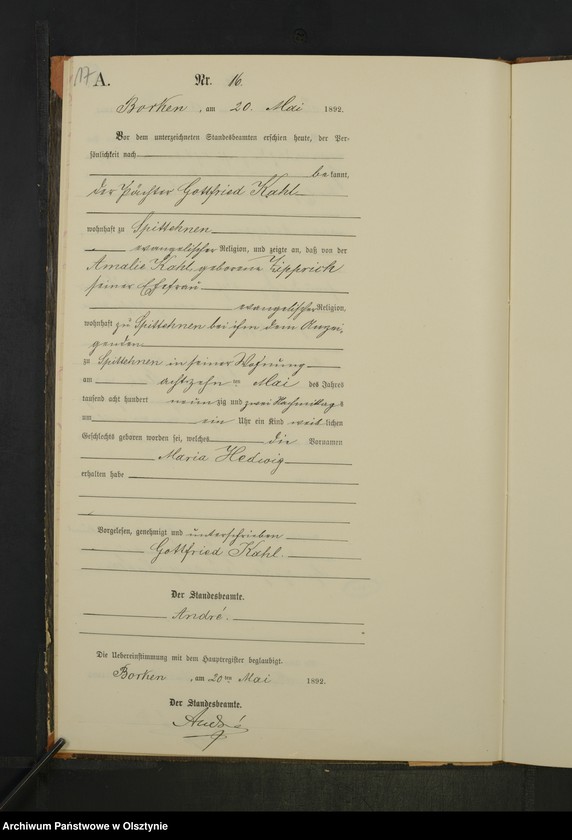 17
A.
Nr. 16.
Borken, am 20. Mai 1892.
Vor dem unterzeichneten Standesbeamten erschien heute, der Per-
sönlichkeit nach
bekannt,
der Pächter Gottfried Kahl
wohnhaft zu Spittehnen
evangelischer Religion, und zeigte an, daß von der
Amalie Kahl, geborene Zipprick
seiner Ehefrau
evangelischer Religion,
wohnhaft zu Spittehnen bei ihm dem Anzei-
genden
zu Spittehnen in seiner Wohnung
am achtzehnten Mai des Jahres
tausend acht hundert neunzig und zwei Nachmittags
um ein Uhr ein Kind weiblichen
Geschlechts geboren worden sei, welches die Vornamen
Maria Hedwig
erhalten habe
Vorgelesen, genehmigt und unterschrieben
Gottfried Kahl.
Der Standesbeamte.
André.
Die Uebereinstimmung mit dem Hauptregister beglaubigt.
Borken, am 20ten Mai 1892.
Der Standesbeamte.
André
Archiwum Państwowe w Olsztynie